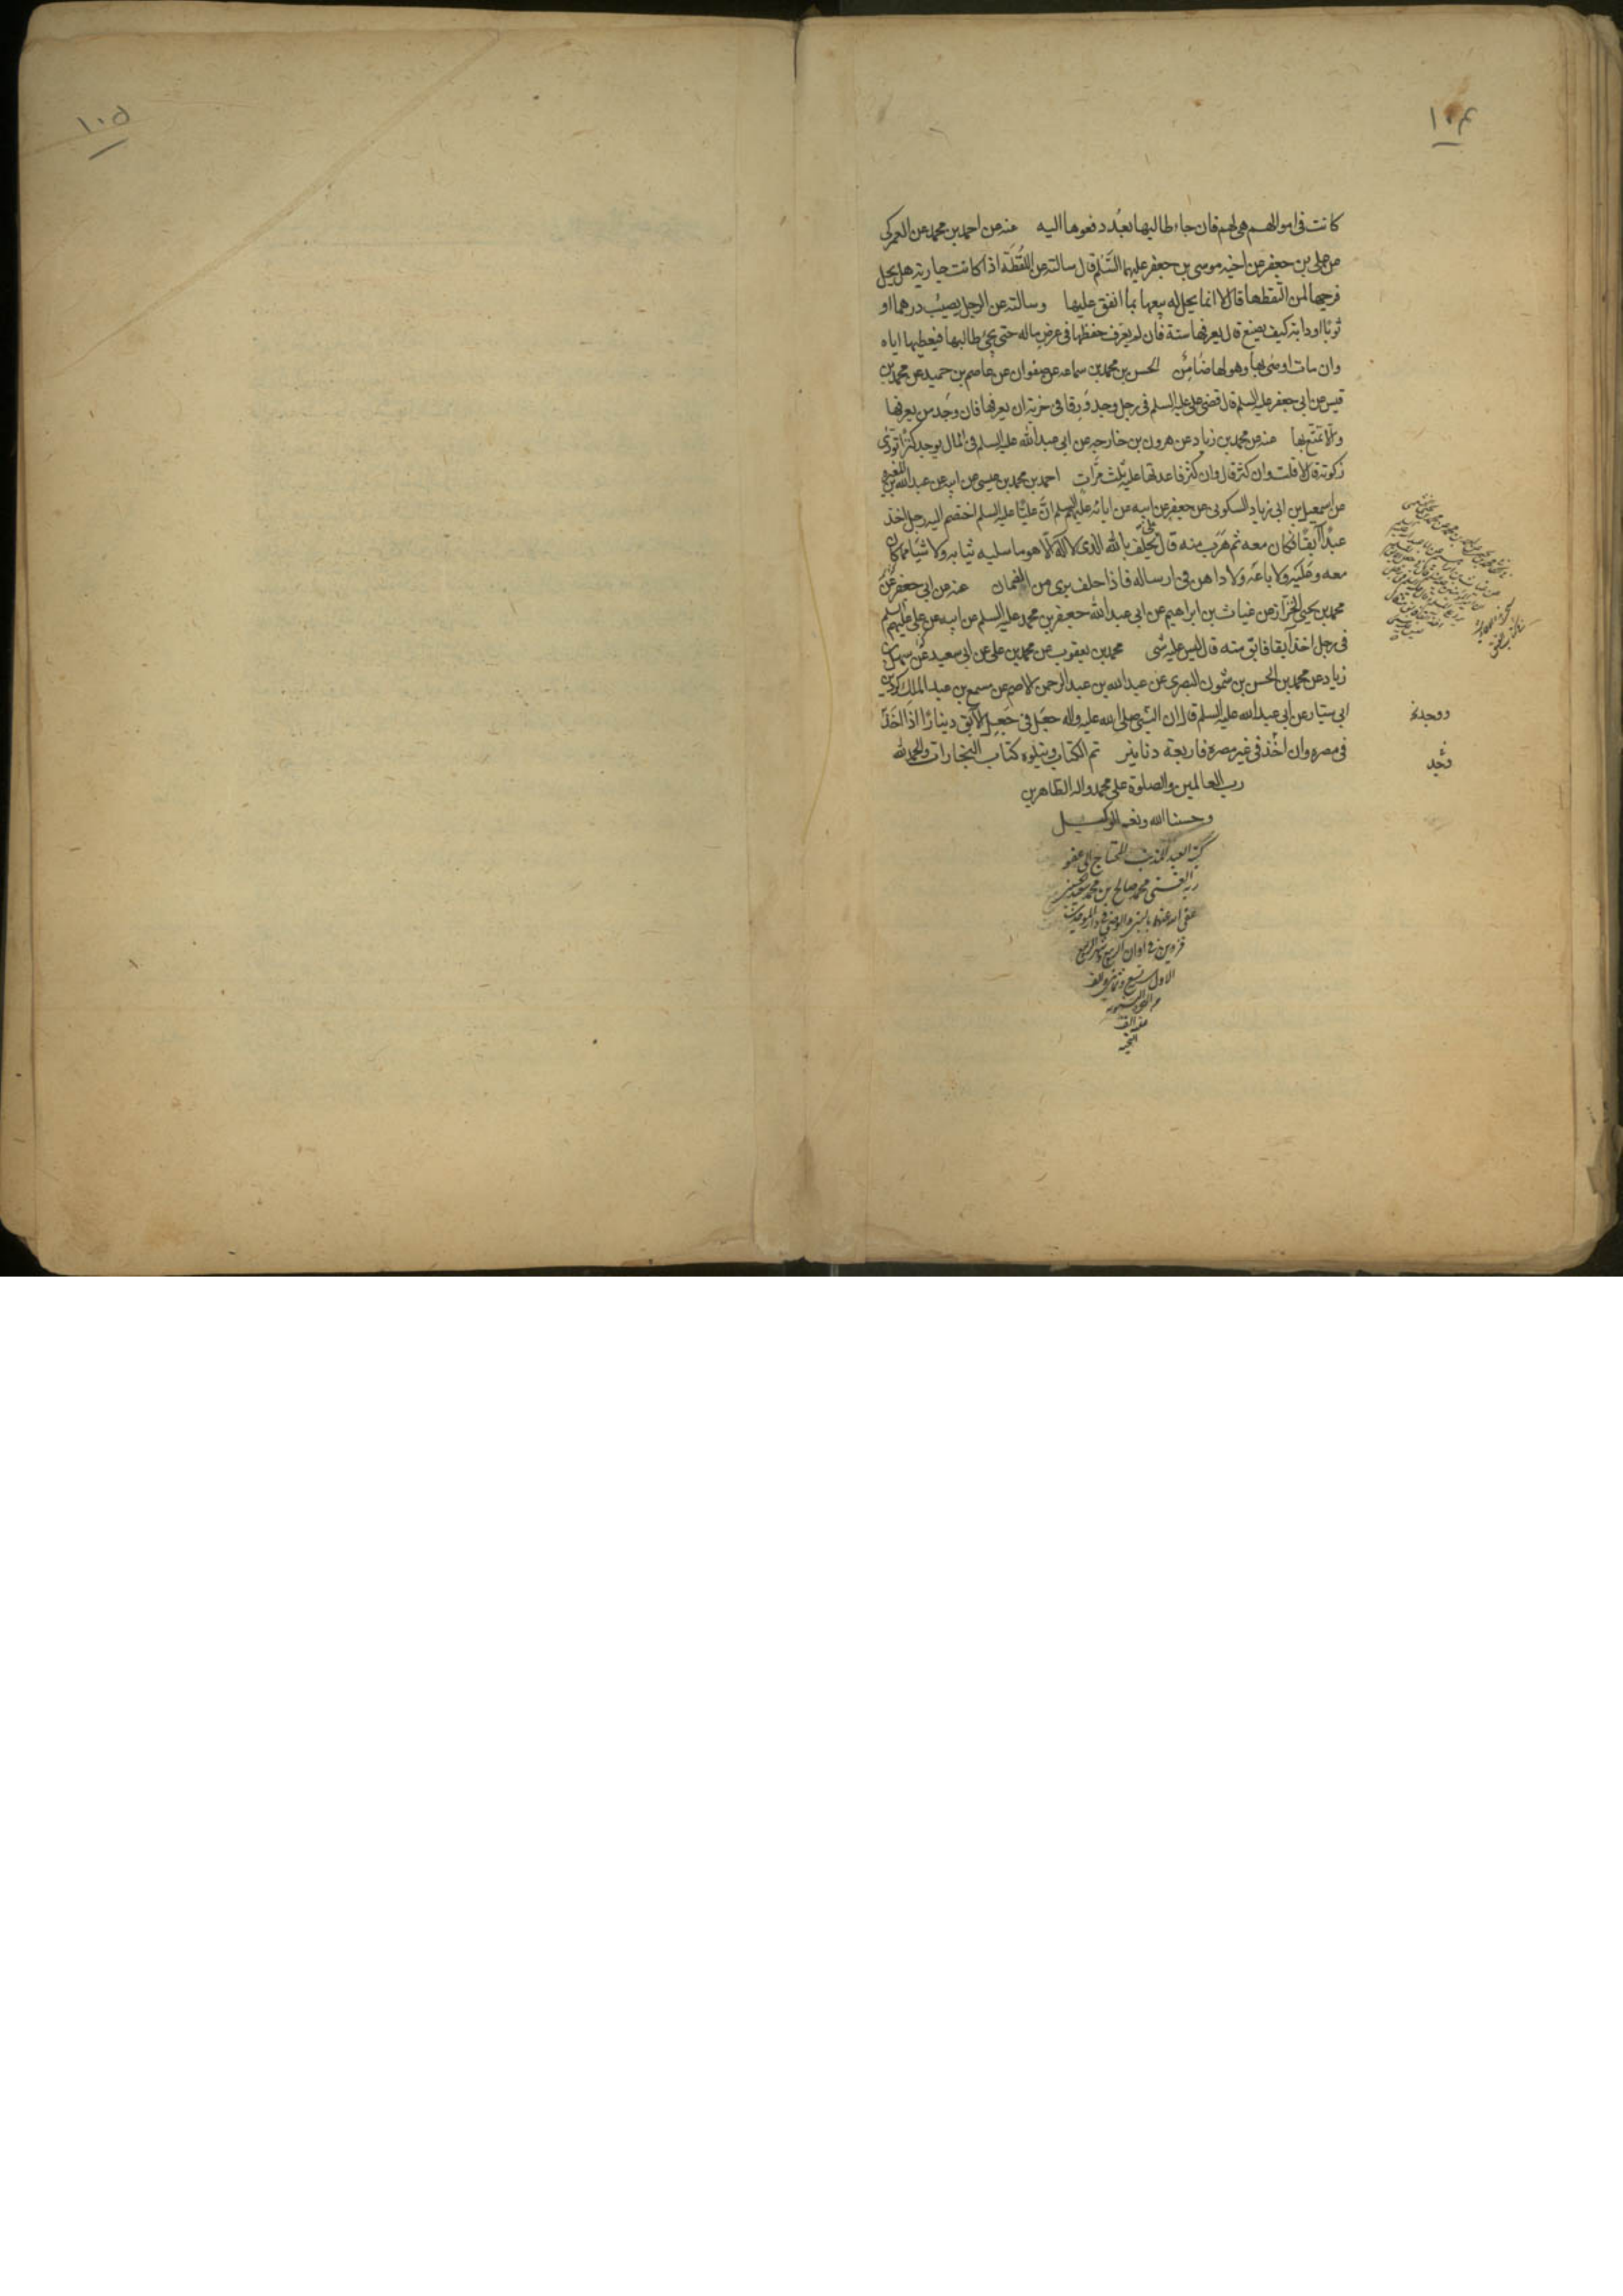 ١٠٤
كانت فى اموالهم هى لهم فان جاء طالبها بعد دفعوها اليه عنه عن احمد بن محمد عن العمركى
عن على بن جعفر عن اخيه موسى بن جعفر عليهما السلم قال سالته عن اللقطة اذا كانت جارية هل يحل
فرجها لمن التقطها قال لا انما يحل له بيعها بما انفق عليها وسالته عن الرجل يصيب درهما او
ثوبا او دابة كيف يصنع قال يعرفها سنة فان لم يعرف حفظها فى عرض ماله حتى يجئ طالبها فيعطيها اياه
وان مات اوصى بها وهو لها ضامن الحسن بن محمد بن سماعه عن صفوان عن عاصم بن حميد عن محمد بن
قيس عن ابى جعفر عليه السلم قال قضى على عليه السلم فى رجل وجد ورقا فى خربة ان يعرفها فان وجد من يعرفها
والا تمتع بها عنه عن محمد بن زياد عن هرون بن خارجه عن ابى عبد الله عليه السلم فى المال يوجد كنزا تؤدى
زكوته قال لا قلت وان كثر قال وان كثر فاعدتها عليه ثلث مرات احمد بن محمد بن عيسى عن ابيه عن عبد الله بن المغيرة
عن اسمعيل بن ابى زياد السكونى عن جعفر عن ابيه عن ابائه عليهم السلم ان عليا عليه السلم اختصم اليه رجل اخذ
عبدا ابقا فكان معه ثم هرب منه قال يحلف بالله الذى لا اله الا هو ما سلبه ثيابه ولا شيئا مما كان
معه وعليه ولا باعه ولا داهن فى ارساله فاذا حلف برى من الضمان عنه عن ابى جعفر عن
محمد بن يحيى الخزاز عن غياث بن ابراهيم عن ابى عبد الله جعفر بن محمد عليه السلم عن ابيه عن على عليهم السلم
فى رجل اخذ آبقا فابق منه قال ليس عليه شى محمد بن يعقوب عن محمد بن على عن ابى سعيد عن سهل بن
زياد عن محمد بن الحسن بن شمون البصرى عن عبد الله بن عبد الرحمن الاصم عن مسمع بن عبد الملك كردين
ابى سيار عن ابى عبد الله عليه السلم قال ان النبى صلى الله عليه واله جعل فى جعل الآبق دينارا اذا اخذ
فى مصره وان اخذ فى غير مصره فاربعة دنانير تم الكتاب ويتلوه كتاب التجارات والحمد لله
رب العالمين والصلوة على محمد واله الطاهرين
وحسبنا الله ونعم الوكيل
كتبه العبد المذنب المحتاج الى عفو
ربه الغنى محمد صالح بن محمد سعيد
عفى الله عنهما
قزوين فى اوان
الاول سنة تسع وثمانين والف
من الهجرة النبوية
عليه الف
التحية
ووجدته
وجد
١٠٥